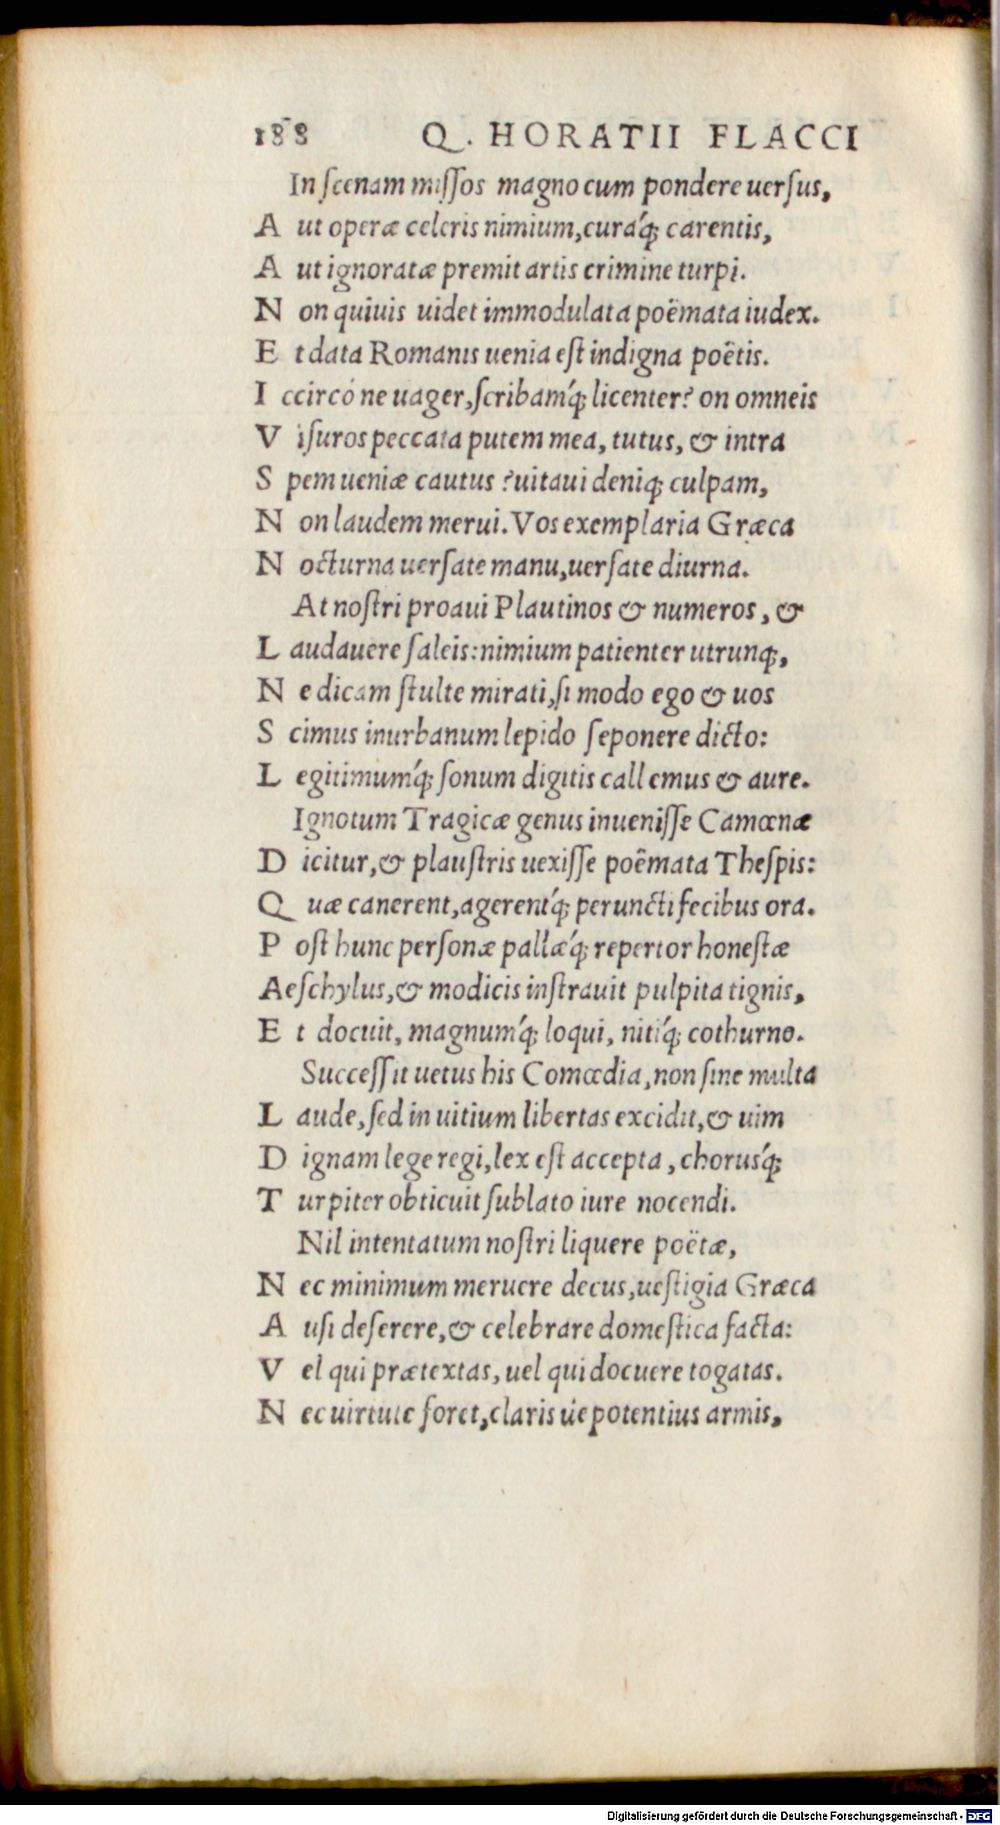 188 Q. HORATII FLACCI
In scenam missos magno cum pondere uersus,
A ut operæ celeris nimium,curaq́; carentis,
A ut ignoratæ premit artis crimine turpi.
N on quiuis uidet immodulata poëmata iudex.
E t data Romanis uenia est indigna poëtis.
I ccirco ne uager,scribamq́; licenter? on omneis
V isuros peccata putem mea, tutus, & intra
S pem ueniæ cautus ?uitaui deniq; culpam,
N on laudem merui. Vos exemplaria Græca
N octurna uersate manu,uersate diurna.
At nostri proaui Plautinos & numeros, &
L audauere saleis:nimium patienter utrunq;,
N e dicam stulte mirati,si modo ego & uos
S cimus inurbanum lepido seponere dicto:
L egitimumq́; sonum digitis callemus & aure.
Ignotum Tragicæ genus inuenisse Camœnæ
D icitur,& plaustris uexisse poëmata Thespis:
Q uæ canerent,agerentq́; peruncti fecibus ora.
P ost hunc personæ pallæq́; repertor honestæ
Aeschylus,& modicis instrauit pulpita tignis,
E t docuit, magnumq́; loqui, nitiq́; cothurno.
Successit uetus his Comœdia,non sine multa
L aude,sed in uitium libertas excidit,& uim
D ignam lege regi,lex est accepta, chorusq́;
T urpiter obticuit sublato iure nocendi.
Nil intentatum nostri liquere poëtæ,
N ec minimum meruere decus,uestigia Græca
A usi deserere,& celebrare domestica facta:
V el qui prætextas, uel qui docuere togatas.
N ec uirtute foret,claris úe potentius armis,
Digitalisierung gefördert durch die Deutsche Forschungsgemeinschaft - DFG